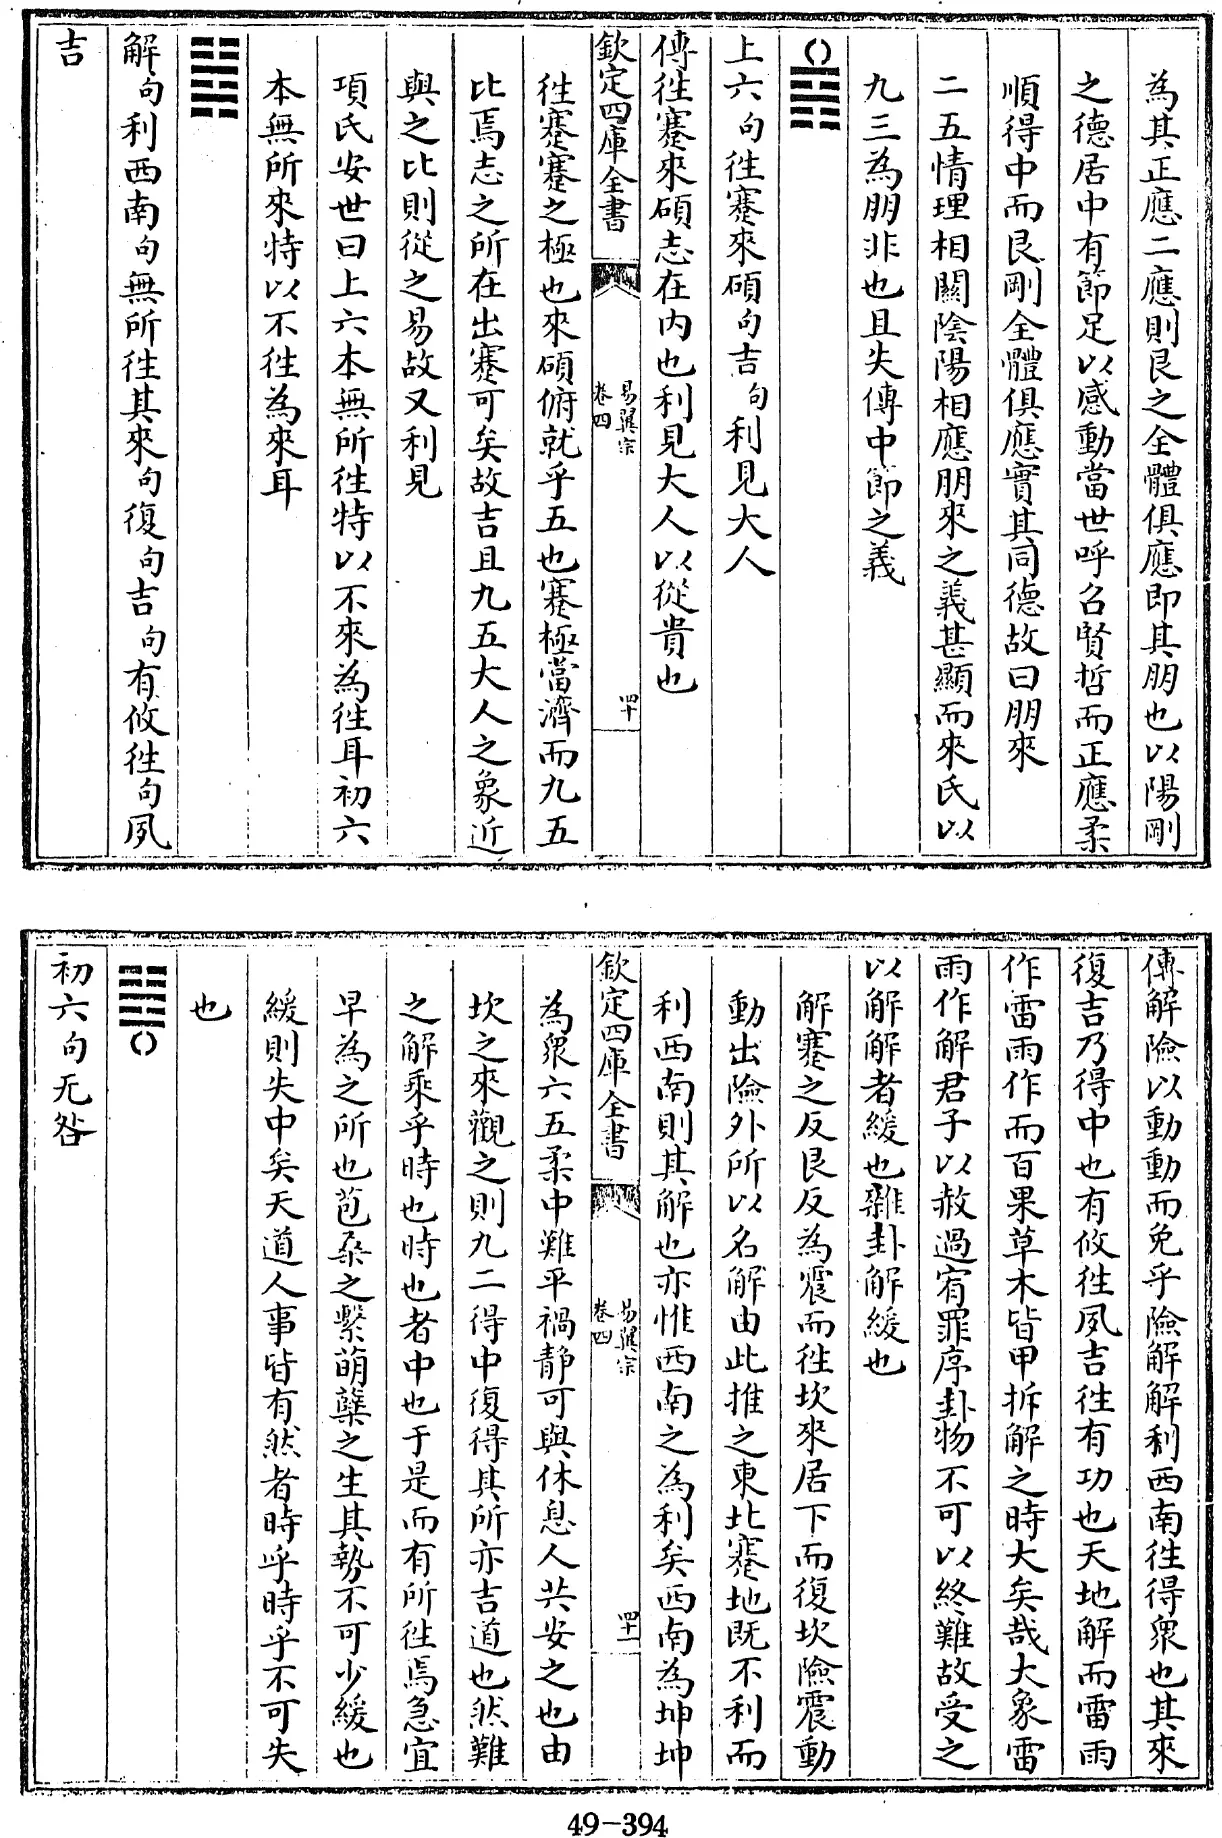 為其正應二應則艮之全體俱應即其朋也以陽剛
之德居中有節足以感動當世呼召賢哲而正應柔
順得中而艮剛全體俱應實其同德故曰朋來
二五情理相關陰陽相應朋來之義甚顯而來氏以
九三為朋非也且失傳中節之義
上六句徃蹇來碩句吉句利見大人
傳徃蹇來碩志在内也利見大人以從貴也
欽定四庫全書
易翼宗
卷四
四十
徃蹇蹇之極也來碩俯就乎五也蹇極當濟而九五
比焉志之所在出蹇可矣故吉且九五大人之象近
與之比則從之易故又利見
項氏安世曰上六本無所徃特以不來為徃耳初六
本無所來特以不徃為來耳
解句利西南句無所徃其來句復句吉句有攸徃句夙
吉
傳解險以動動而免乎險解解利西南徃得衆也其來
復吉乃得中也有攸徃夙吉往有功也天地解而雷雨
作雷雨作而百果草木皆甲拆解之時大矣哉大象雷
雨作解君子以赦過宥罪序卦物不可以終難故受之
以解解者緩也雜卦解緩也
解蹇之反艮反為震而徃坎來居下而復坎險震動
動出險外所以名解由此推之東北蹇地既不利而
利西南則其解也亦惟西南之為利矣西南為坤坤
欽定四庫全書
易翼宗
卷四
四十一
為衆六五柔中難平禍靜可與休息人共安之也由
坎之來觀之則九二得中復得其所亦吉道也然難
之解乘乎時也時也者中也于是而有所徃焉急宜
早為之所也苞桑之繫萌蘖之生其勢不可少緩也
緩則失中矣天道人事皆有然者時乎時乎不可失
也
初六句无咎
49-394